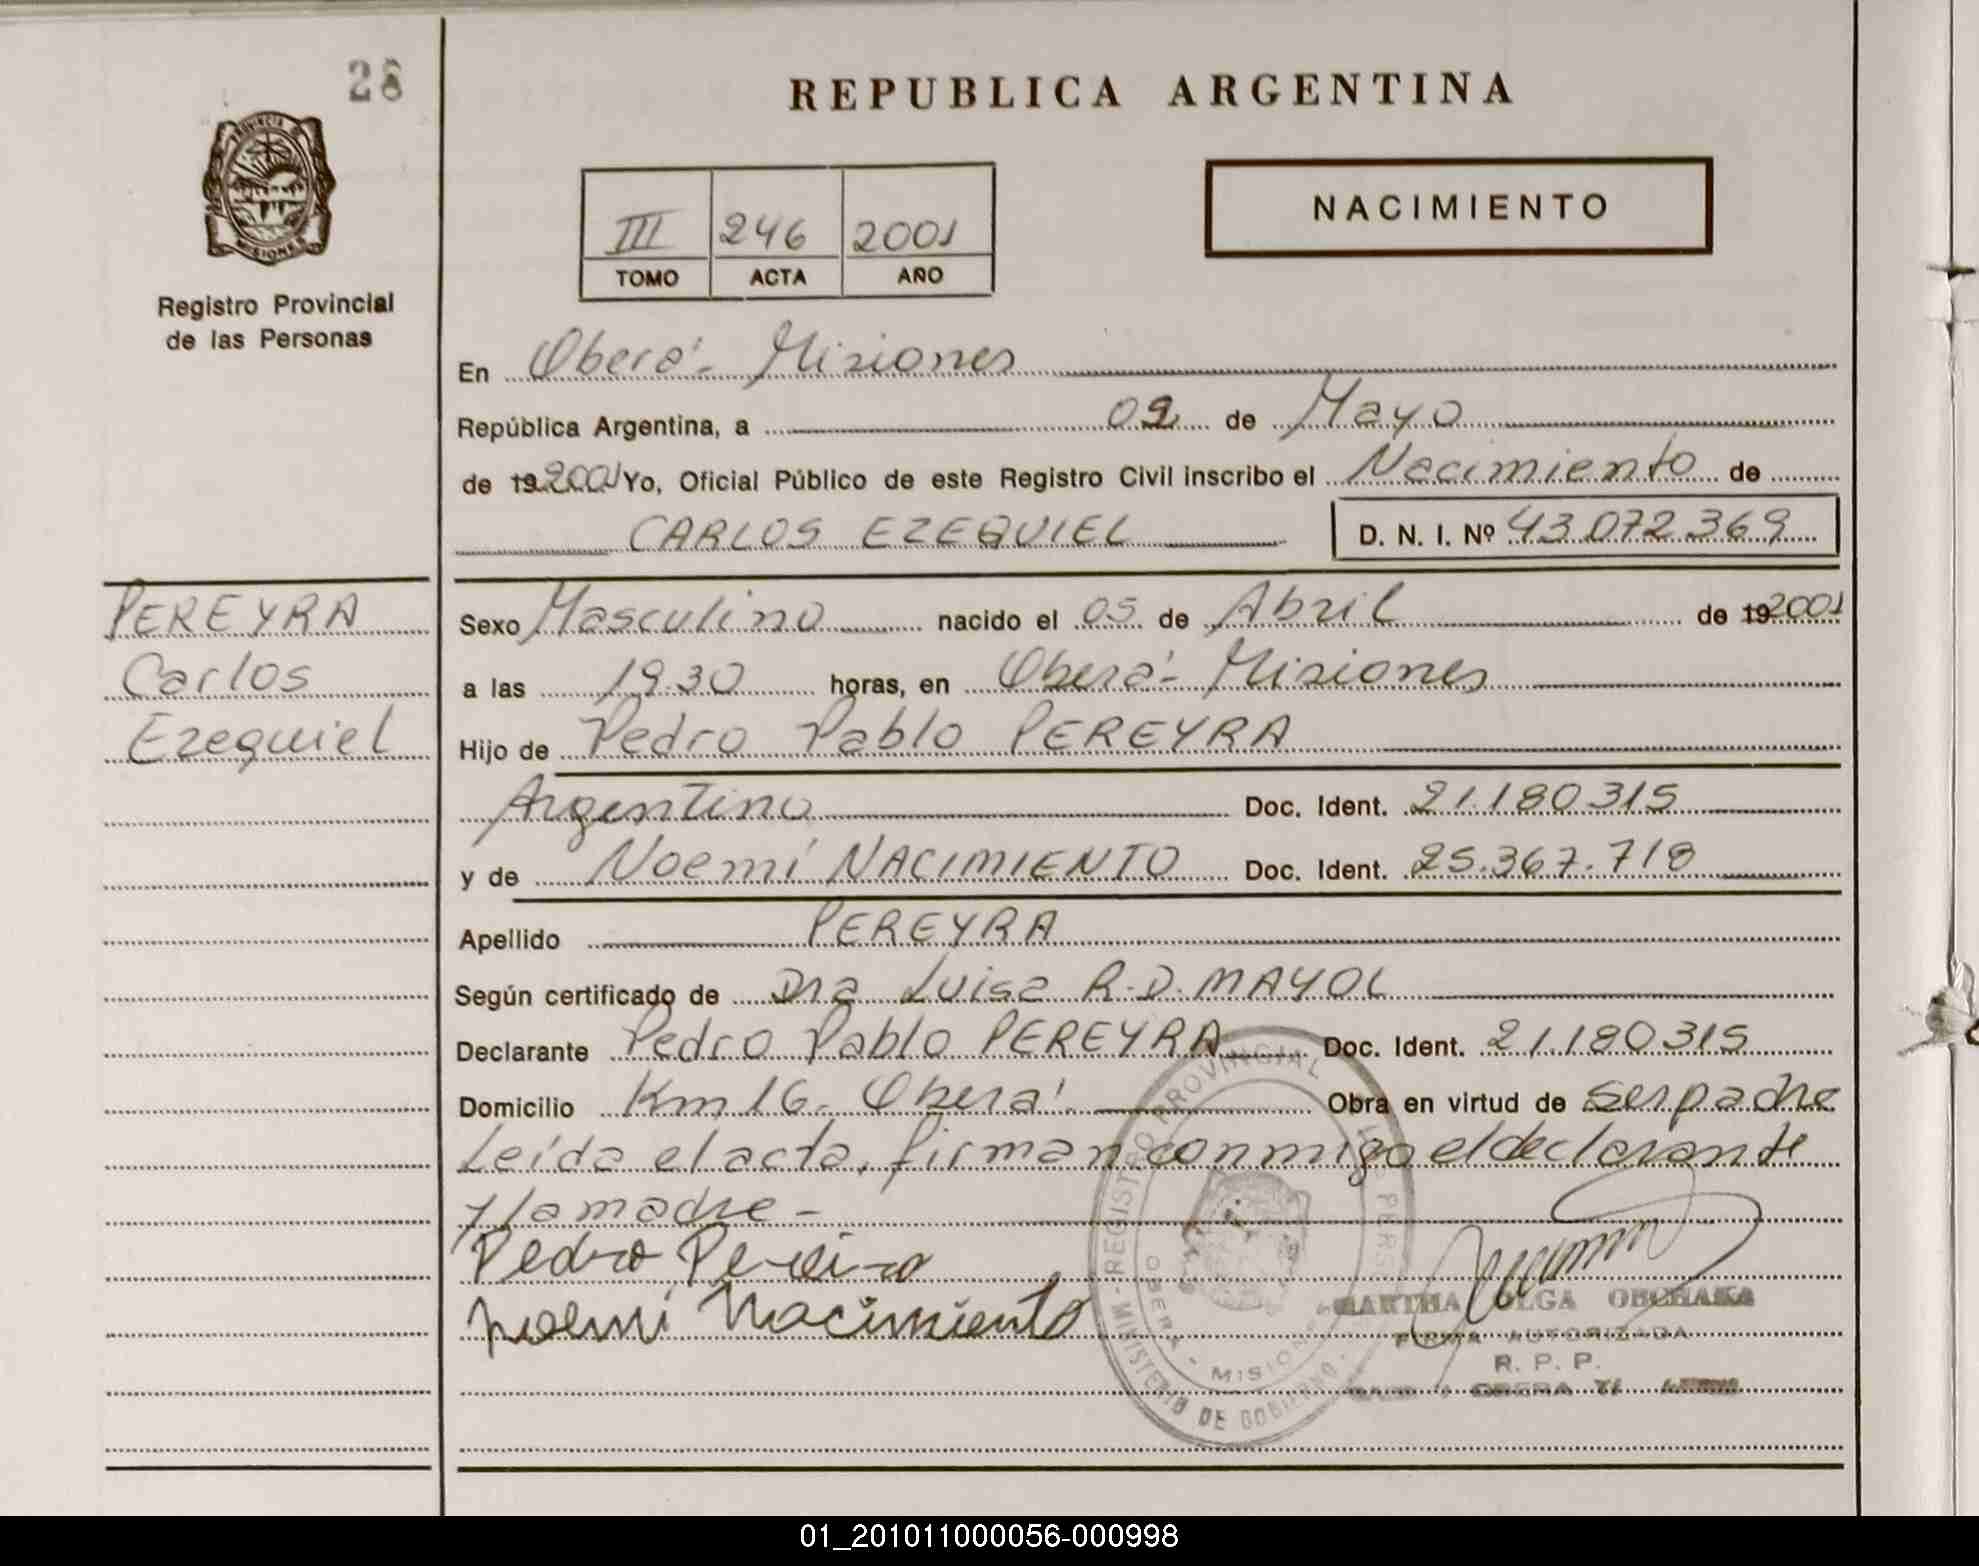 28
REPUBLICA ARGENTINA
PROVINCIA DE
MISIONES
III 246 2001
TOMO ACTA AÑO
NACIMIENTO
Registro Provincial
de las Personas
En Oberá - Misiones
República Argentina, a 02 de Mayo
de 19 2001 Yo, Oficial Público de este Registro Civil inscribo el Nacimiento de
CARLOS EZEQUIEL D. N. I. Nº 43.072.369
PEREYRA
Carlos
Ezequiel
Sexo Masculino nacido el 05 de Abril de 19 2001
a las 19.30 horas, en Oberá - Misiones
Hijo de Pedro Pablo PEREYRA
Argentino Doc. Ident. 21.180.315
y de Noemí NACIMIENTO Doc. Ident. 25.367.718
Apellido PEREYRA
Según certificado de Dra Luisa R. D. MAYOL
Declarante Pedro Pablo PEREYRA Doc. Ident. 21.180.315
Domicilio Km 16 - Oberá Obra en virtud de ser padre
Leída el acta, firman conmigo el declarante
y la madre -
Pedro Pereira
Noemi Nacimiento
REGISTRO PROVINCIAL
MINISTERIO DE GOBIERNO
OBERA - MISIONES
MARTHA OLGA
FIRMA AUTORIZADA
R. P. P.
OBERA
01_201011000056-000998